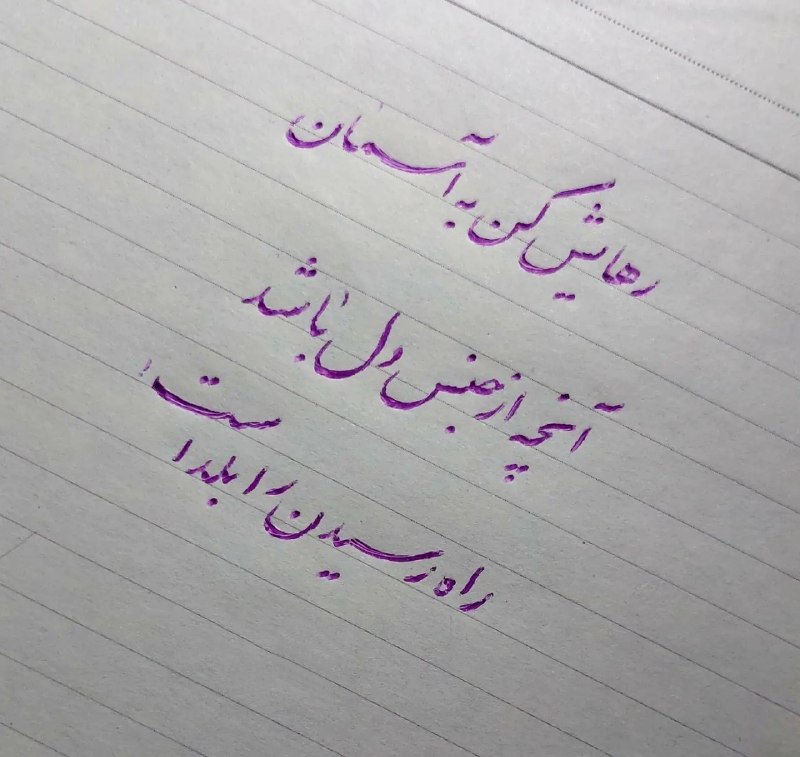 رهایش کن به آسمان
آنچه از جنس دل باشد
راه رسیدن را بلد است!